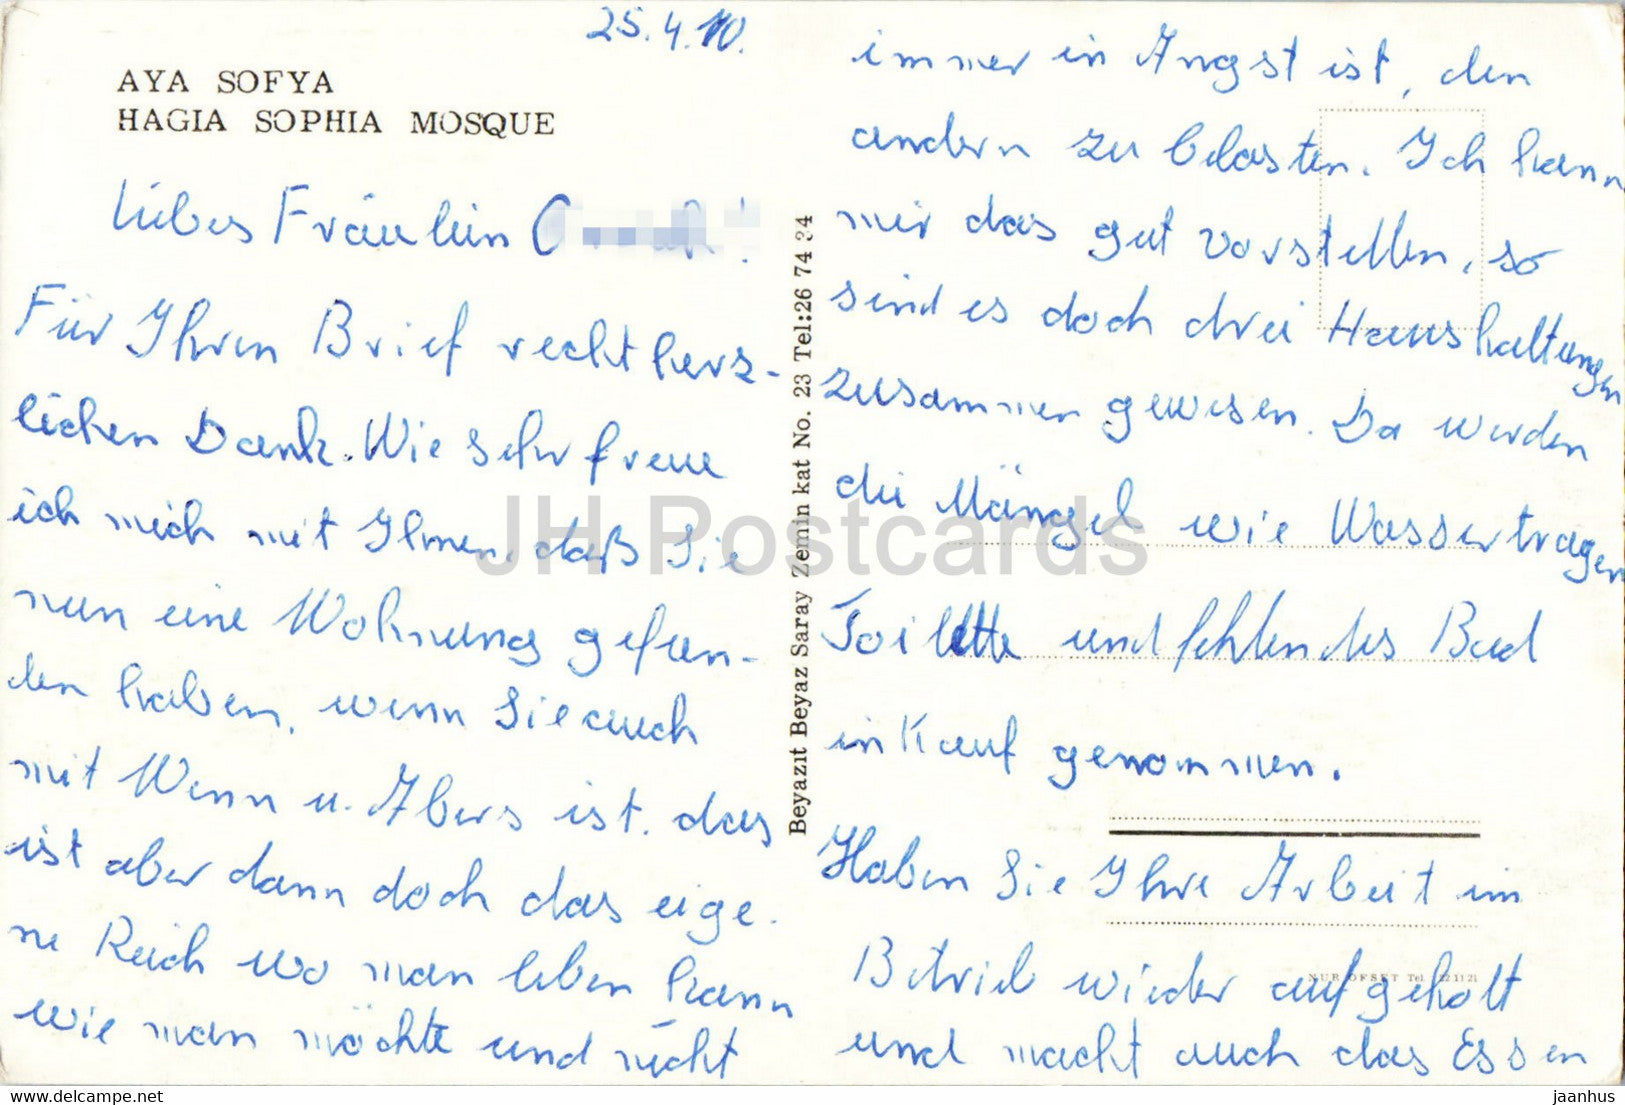 25.4.70.
AYA SOFYA
HAGIA SOPHIA MOSQUE
Liebes Fräulein
Für Ihren Brief recht herz-
lichen Dank. Wie sehr freue
ich mich mit Ihnen, daß Sie
nun eine Wohnung gefun-
den haben, wenn Sie auch
mit Wenn u. Abers ist. das
ist aber dann doch das eige-
ne Reich wo man leben kann
wie man möchte und nicht
Beyazıt Beyaz Saray Zemin kat No. 23 Tel:26 74 34
immer in Angst ist, den
andern zu belasten. Ich kann
mir das gut vorstellen, so
sind es doch drei Haushaltungen
zusammen gewesen. Da werden
die Mängel wie Wassertragen
Toilette und fehlendes Bad
in Kauf genommen.
Haben Sie Ihre Arbeit im
Betrieb wieder aufgeholt
und macht auch das Essen
NUR OFSET Tel. 22 11 21
JH Postcards
www.delcampe.net
jaanhus